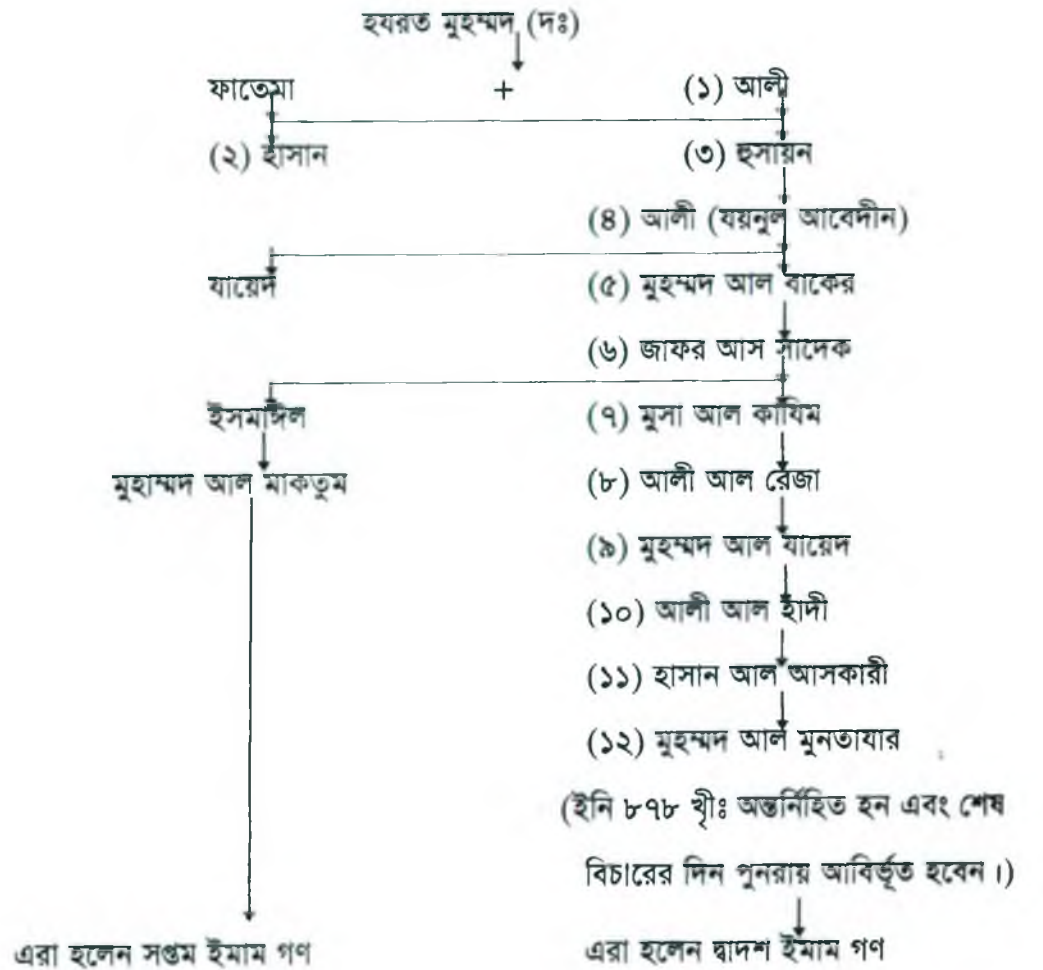 হযরত মুহম্মদ (দঃ)
ফাতেমা + (১) আলী
(২) হাসান (৩) হুসায়ন
(৪) আলী (যয়নুল আবেদীন)
যায়েদ (৫) মুহম্মদ আল বাকের
(৬) জাফর আস সাদেক
ইসমাঈল (৭) মুসা আল কাযিম
মুহাম্মদ আল মাকতুম (৮) আলী আল রেজা
(৯) মুহম্মদ আল যায়েদ
(১০) আলী আল হাদী
(১১) হাসান আল আসকারী
(১২) মুহম্মদ আল মুনতাযার
(ইনি ৮৭৮ খ্রীঃ অন্তর্নিহিত হন এবং শেষ
বিচারের দিন পুনরায় আবির্ভূত হবেন।)
এরা হলেন সপ্তম ইমাম গণ এরা হলেন দ্বাদশ ইমাম গণ